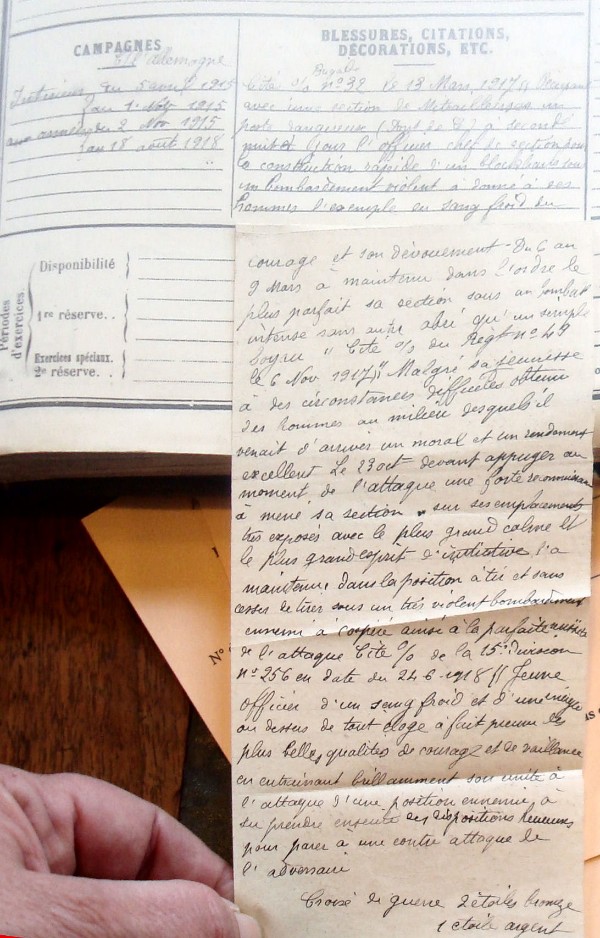 CAMPAGNES
à l'Allemagne
Intérieur, du 5 avril 1915
au 1er Nov 1915
aux armées du 2 Nov 1915
au 18 août 1918
"
BLESSURES, CITATIONS,
DÉCORATIONS, ETC.
Cité % n° 32 le 13 Mars 1917 "
avec une section de Mitrailleuses un
poste dangereux ( de ) à secondé
l'officier chef de section pour
la construction rapide d'un blockhaus sous
un bombardement violent à donné à ses
hommes l'exemple du sang froid du
Disponibilité
1re réserve. .
Exercices spéciaux.
2e réserve. . .
Périodes
d'exercices.
courage et son dévouement - Du 6 au
9 Mars à maintenu dans l'ordre le
plus parfait sa section sous un bombat
intense sans autre abri qu'un simple
boyau " Cité % du Régt n° 49
le 6 Nov 1917 " Malgré sa jeunesse
à des circonstances difficiles obtenu
des hommes au milieu desquels il
venait d'arriver un moral et un rendement
excellent Le 23 oct devant appuyer au
moment de l'attaque une forte reconnaissance
à mené sa section sur ses emplacements
très exposés avec le plus grand calme et
le plus grand esprit d'initiative l'a
maintenu dans la position à tir et sans
cesser de tirer sous un très violent bombardement
ennemi à ainsi à la parfaite
de l'attaque Cité % de la 15e Division
N° 256 en date du 24-6-1918 " Jeune
officier d'un sang froid et d'une
au dessus de tout éloge à fait preuve des
plus belles qualités de courage et de vaillance
en entrainant brillamment son unité à
l'attaque d'une position ennemie, à
su prendre ensuite des dispositions heureuses
pour parer à une contre attaque de
l'adversaire
Croix de guerre 2 étoiles bronze
1 étoile argent